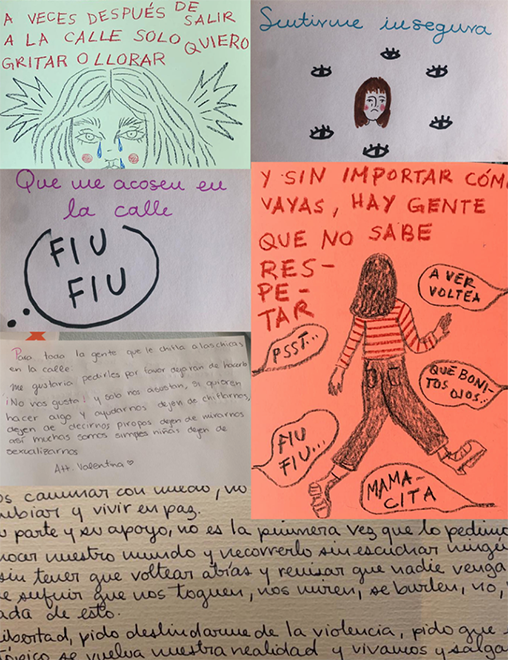 A VECES DESPUÉS DE SALIR
A LA CALLE SOLO QUIERO
GRITAR O LLORAR
Sentirme insegura
Que me acosen en
la calle
FIU
FIU
Y SIN IMPORTAR CÓM
VAYAS, HAY GENTE
QUE NO SABE
RES-
PE-
TAR
A VER
VOLTEA
PSST...
QUÉ BONI-
TOS OJOS...
FIU
FIU...
MAMA-
CITA
Para toda la gente que le chifla a las chicas
en la calle
me gustaria pedirles por favor dejaran de hacerlo
¡No nos gusta! y solo nos asustan, si quieren
hacer algo y ayudarnos dejen de chiflarnos,
dejen de decirnos piropos dejen de mirarnos
así muchas somos simples niñas dejen de
sexualizarnos
Att. Valentina
os caminar con miedo, no
mbiar y vivir en paz.
parte y su apoyo, no es la primera vez que lo pedimo
nocer nuestro mundo y recorrerlo sin escuchar ningú
sin tener que voltear atrás y revisar que nadie venga
e sufrir que nos toquen, nos miren, se burlen, no,
ada de esto.
libertad, pido deslindarme de la violencia, pido que
tópico se vuelva nuestra realidad y vivamos y salga